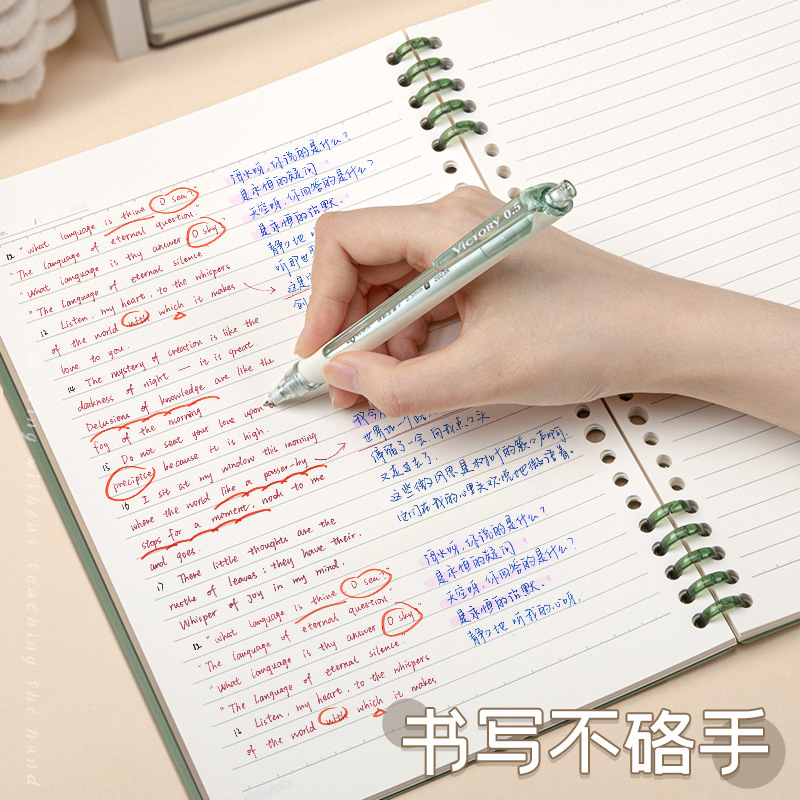 12 "what language is thine O sea?"
"The language of eternal question."
"What language is thy answer O sky"
"The language of eternal silence
13 Listen, my heart, to the whispers
of the world with which it makes
love to you.
14 The mystery of creation is like the
darkness of night — it is great.
Delusions of knowledge are like the
fog of the morning
15 Do not seat your love upon a
precipice because it is high.
16 I sit at my window this morning
where the world like a passer-by
stops for a moment, nods to me
and goes.
17 There little thoughts are the
rustle of leaves; they have their.
Whisper of joy in my mind.
12 "what language is thine O sea."
"The language of eternal question"
"What language is thy answer O sky"
"The language of eternal silence
13 Listen, my heart, to the whispers
of the world with which it makes
海水呀,你说的是什么?
是永恒的疑问
天空呀,你回答的是什么?
是永恒的沉默.
静静地 听
听那世
这是
世界如一个路
停留了一会,向我点点头
又走过去了.
这些微
海水呀,你说的是什么?
是永恒的疑问
天空呀,你回答的是什么?
是永恒的沉默.
静静地 听 我的心呀.
VICTORY 0.5
without touching the hand
书写不硌手